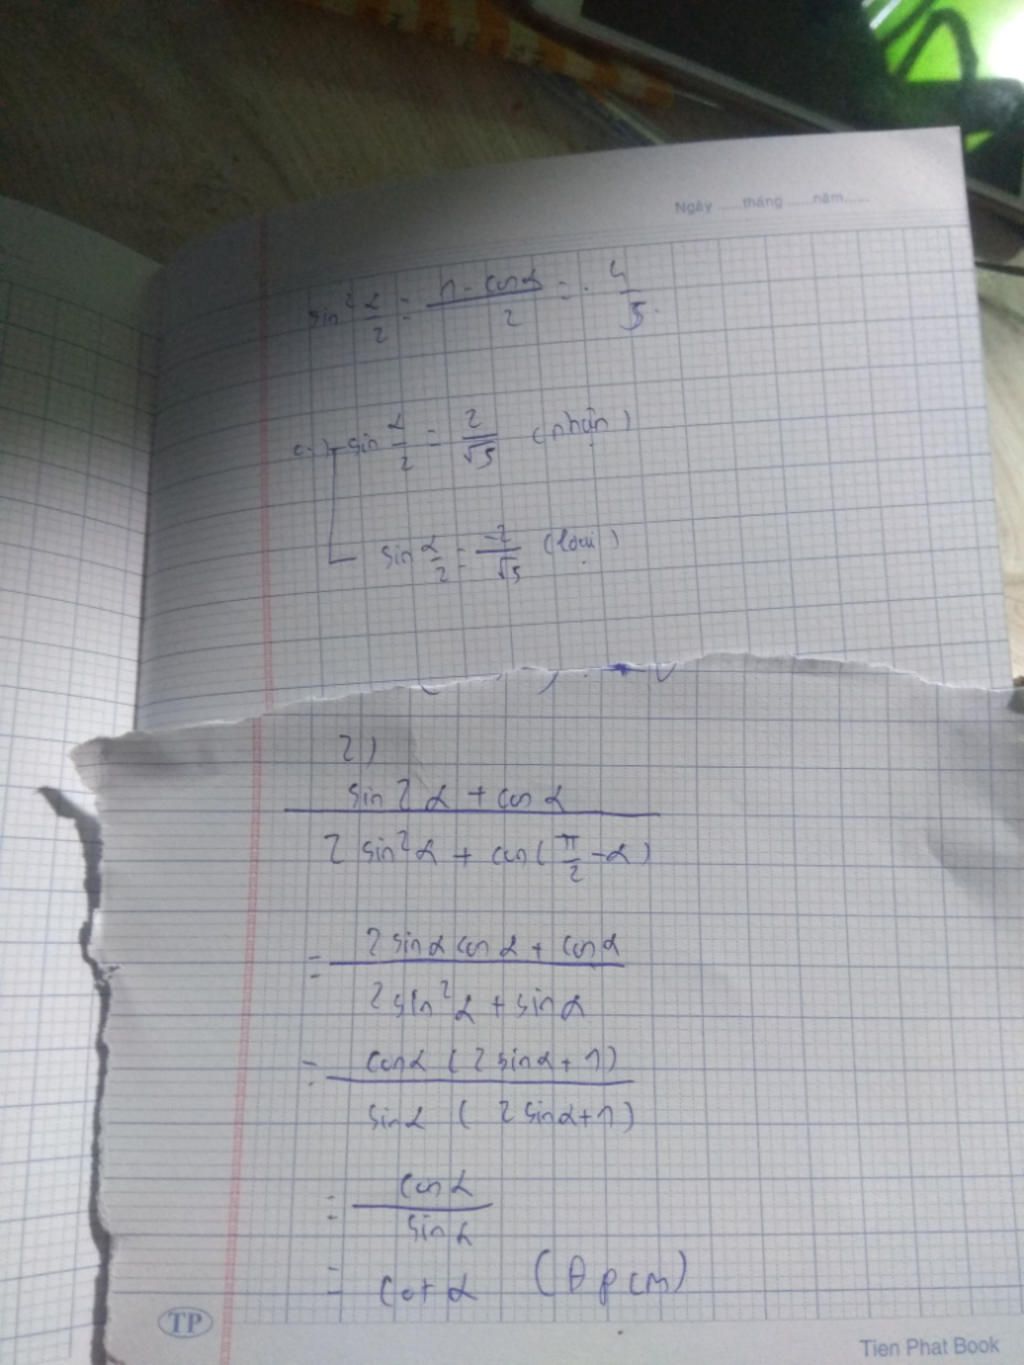 Ngày ..... tháng ..... năm.....
sin² α/2 = (1 - cos α)/2 = 4/5
sin α/2 = 2/√5 (nhận)
sin α/2 = -2/√5 (loại)
2)
(sin 2α + cos α)/(2 sin²α + cos(π/2 - α))
= (2 sin α cos α + cos α)/(2 sin²α + sin α)
= (cos α (2 sin α + 1))/(sin α (2 sin α + 1))
= cos α/sin α
= cot α (Đpcm)
TP
Tien Phat Book